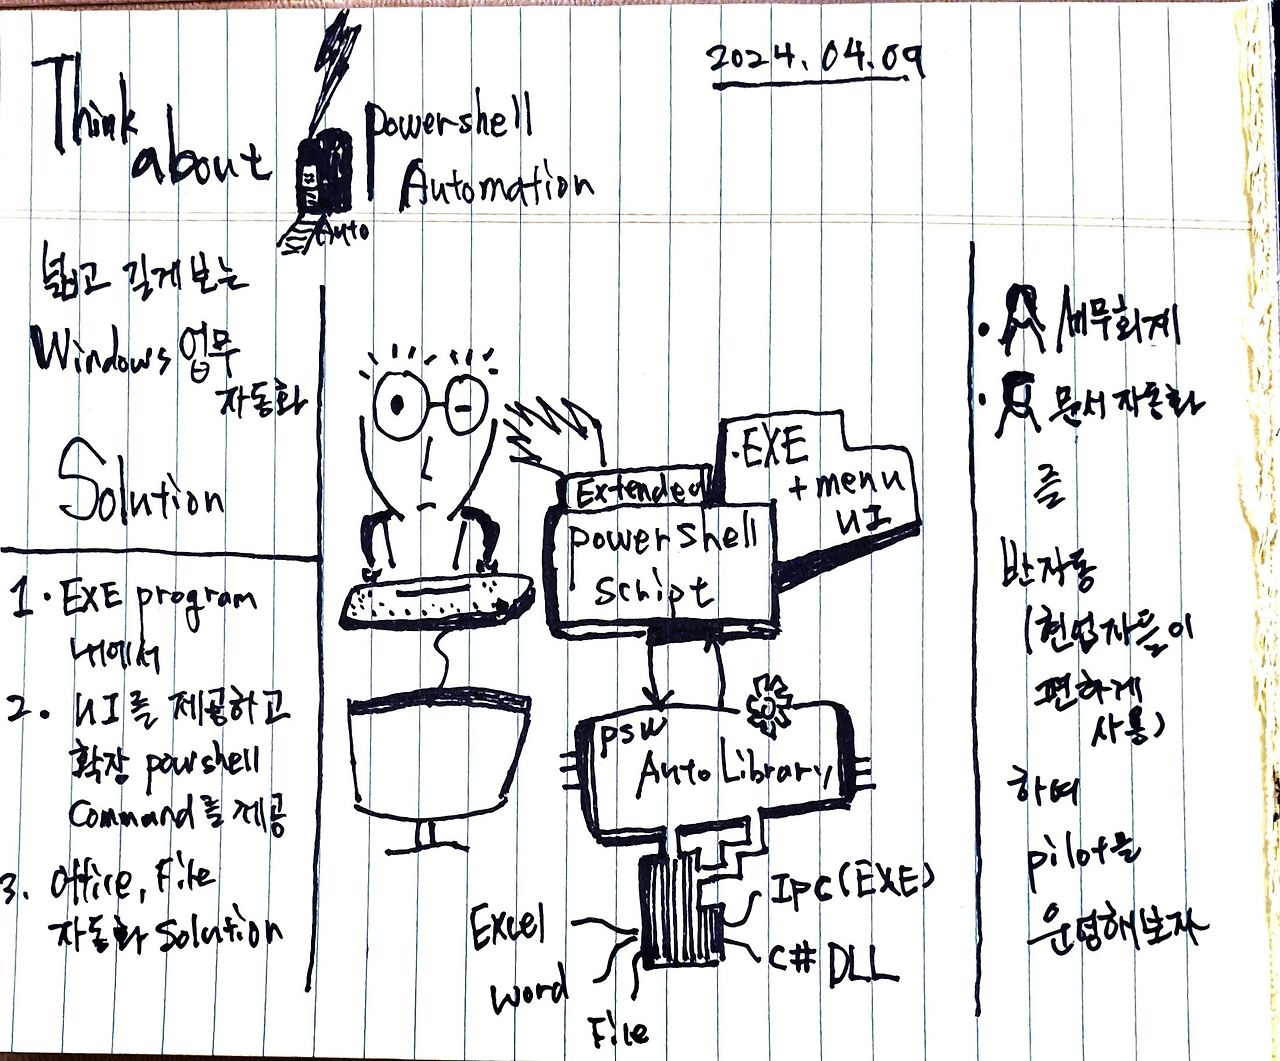 2024.04.09
Think
about
Powershell
Automation
Auto
넓고 길게 보는
Windows 업무
자동화
Solution
1. EXE program
내에서
2. UI를 제공하고
확장 powshell
Command를 제공
3. Office, File
자동화 Solution
Extended
power shell
script
.EXE
+ menu
UI
psw
Auto Library
Excel
word
File
IPC (EXE)
C# DLL
• 세무회계
• 문서자동화
를
반자동
(현업자들이
편하게
사용)
하여
pilot을
운영해보자